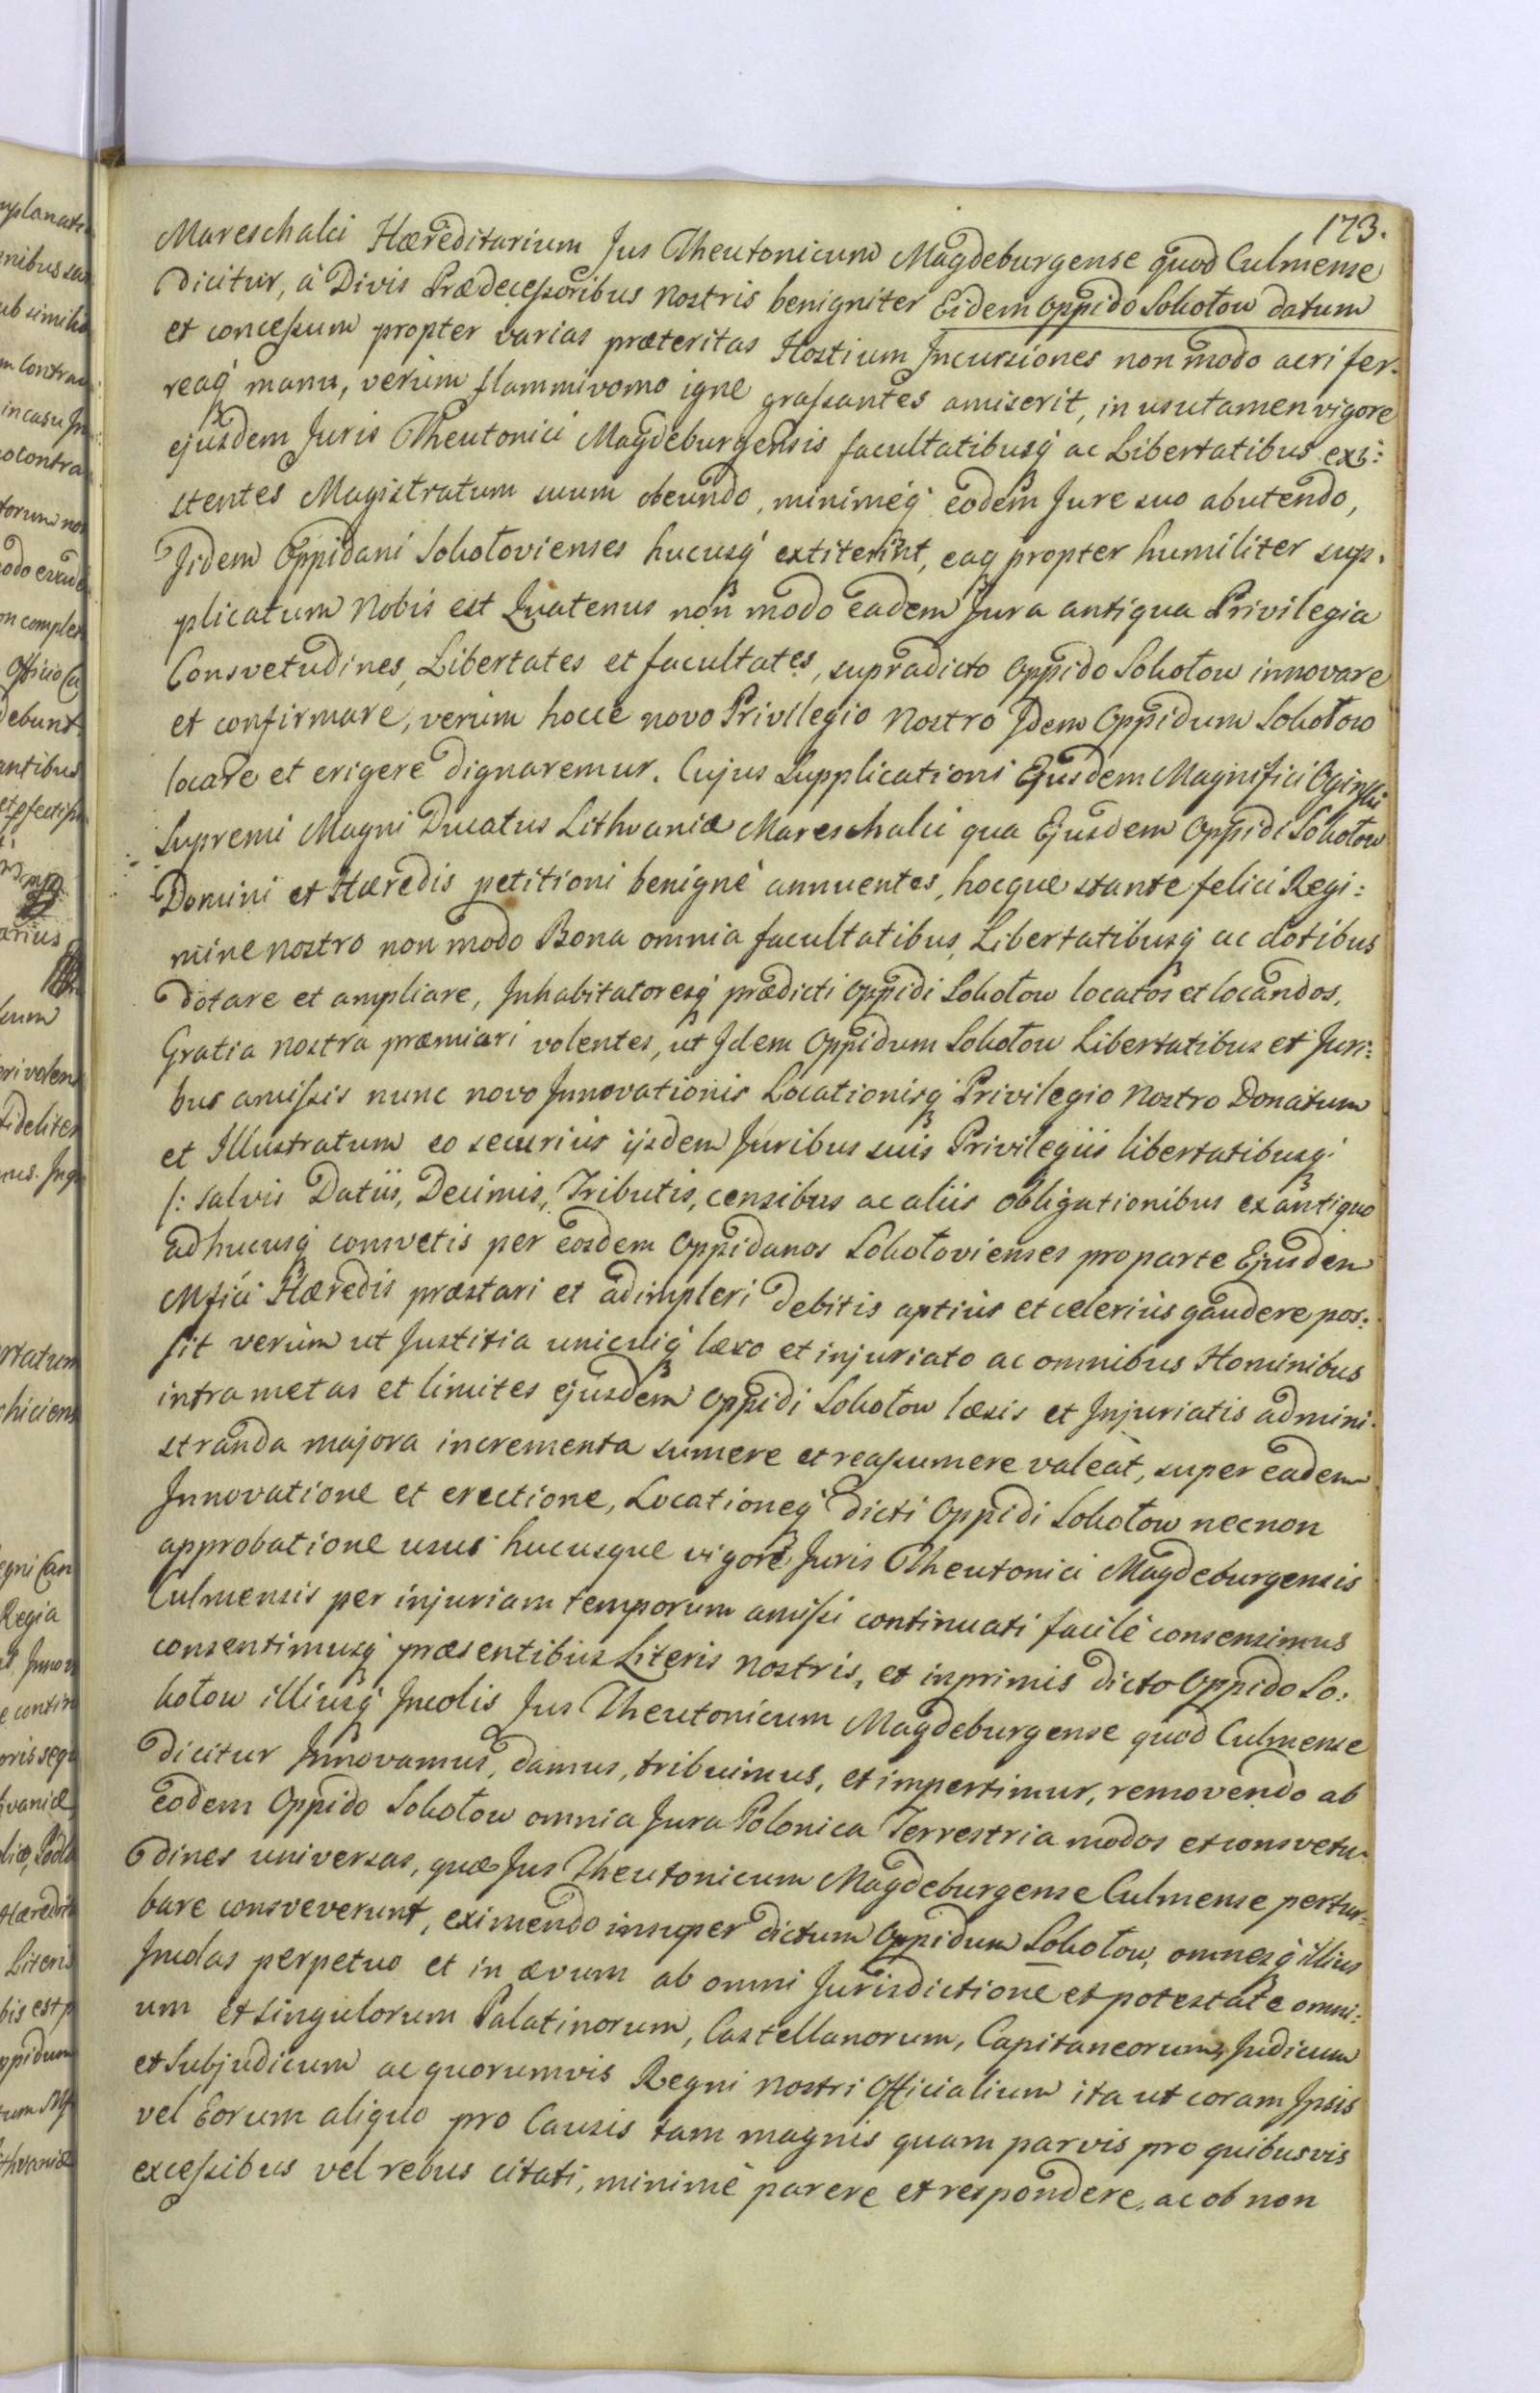 173.
Mareschalci Hæreditarium Jus Theutonicum Magdeburgense quod Culmense
dicitur, à Divis Prædeceſsoribus nostris benigniter Eidem Oppido Sokołow datum
et conceſsum propter varias præteritas Hostium Incursiones non modo acri fer-
reaq́ manu, verùm flammivomo igne graſsantes amiserit, in usu tamen vigore
ejusdem Juris Theutonici Magdeburgensis facultatibusq́ ac Libertatibus exi:
stentes Magistratum suum obeundo, minimeq́ eodem Jure suo abutendo,
Jidem Oppidani Sokołovienses hucusq́ extiterint, eaq́ propter humiliter sup-
plicatum Nobis est Quatenus non modo eadem Jura antiqua Privilegia
Consvetudines, Libertates et facultates, supradicto Oppido Sokołow innovare
et confirmare, verùm hocce novo Privilegio Nostro Idem Oppidum Sokołow
locare et erigere dignaremur. Cujus Supplicationi Ejusdem Magnifici Oginſki
Supremi Magni Ducatus Lithvaniæ Mareschalci qua Ejusdem Oppidi Sokołow
Domini et Hæredis petitioni benignè annuentes, hocque stante felici Regi:
mine nostro non modo Bona omnia facultatibus, Libertatibusq́ ac dotibus
dotare et ampliare, Inhabitatoresq́ prædicti Oppidi Sokołow locatos et locandos,
Gratia nostra præmiari volentes, ut Idem Oppidum Sokołow Libertatibus et Juri:
bus amiſsis nunc novo Innovationis Locationisq́ Privilegio Nostro Donatum
et Illustratum eo securiùs ijsdem Juribus suis Privilegiis libertatibusq́
/: salvis Datiis, Decimis, Tributis, censibus ac aliis obligationibus ex antiquo
adhucusq́ consvetis per eosdem Oppidanos Sokołovienses pro parte Ejusdem
Mfici Hæredis præstari et adimpleri debitis aptiùs et celeriùs gaudere pos:
sit verùm ut Justitia unicuiq́ læso et injuriato ac omnibus Hominibus
intra metas et limites ejusdem Oppidi Sokołow læsis et Injuriatis admini-
stranda majora incrementa sumere et reaſsumere valeat, super eadem
Innovatione et erectione, Locationeq́ dicti Oppidi Sokołow necnon
approbatione usus hucusque vigore Juris Theutonici Magdeburgensis
Culmensis per injuriam temporum amiſsi continuati facilè consensimus
consentimusq́ præsentibus Literis nostris, et inprimis dicto Oppido So:
kołow illiusq́ Incolis Jus Theutonicum Magdeburgense quod Culmense
dicitur Innovamus, damus, tribuimus, et impertimur, removendo ab
eodem Oppido Sokołow omnia Jura Polonica Terrestria modos et consvetu-
dines universas, quæ Jus Theutonicum Magdeburgense Culmense pertur:
bare consveverunt, eximendo insuper dictum Oppidum Sokołow, omnesq́ illius
Incolas perpetuo et in ævum ab omni Jurisdictione et potestate omni:
um et singulorum Palatinorum, Castellanorum, Capitaneorum, Judicum
et Subjudicum ac quorumvis Regni nostri Officialium ita ut coram Ipsis
vel Eorum aliquo pro Causis tam magnis quam parvis pro quibusvis
exceſsibus vel rebus citati, minimè parere et respondere, ac ob non